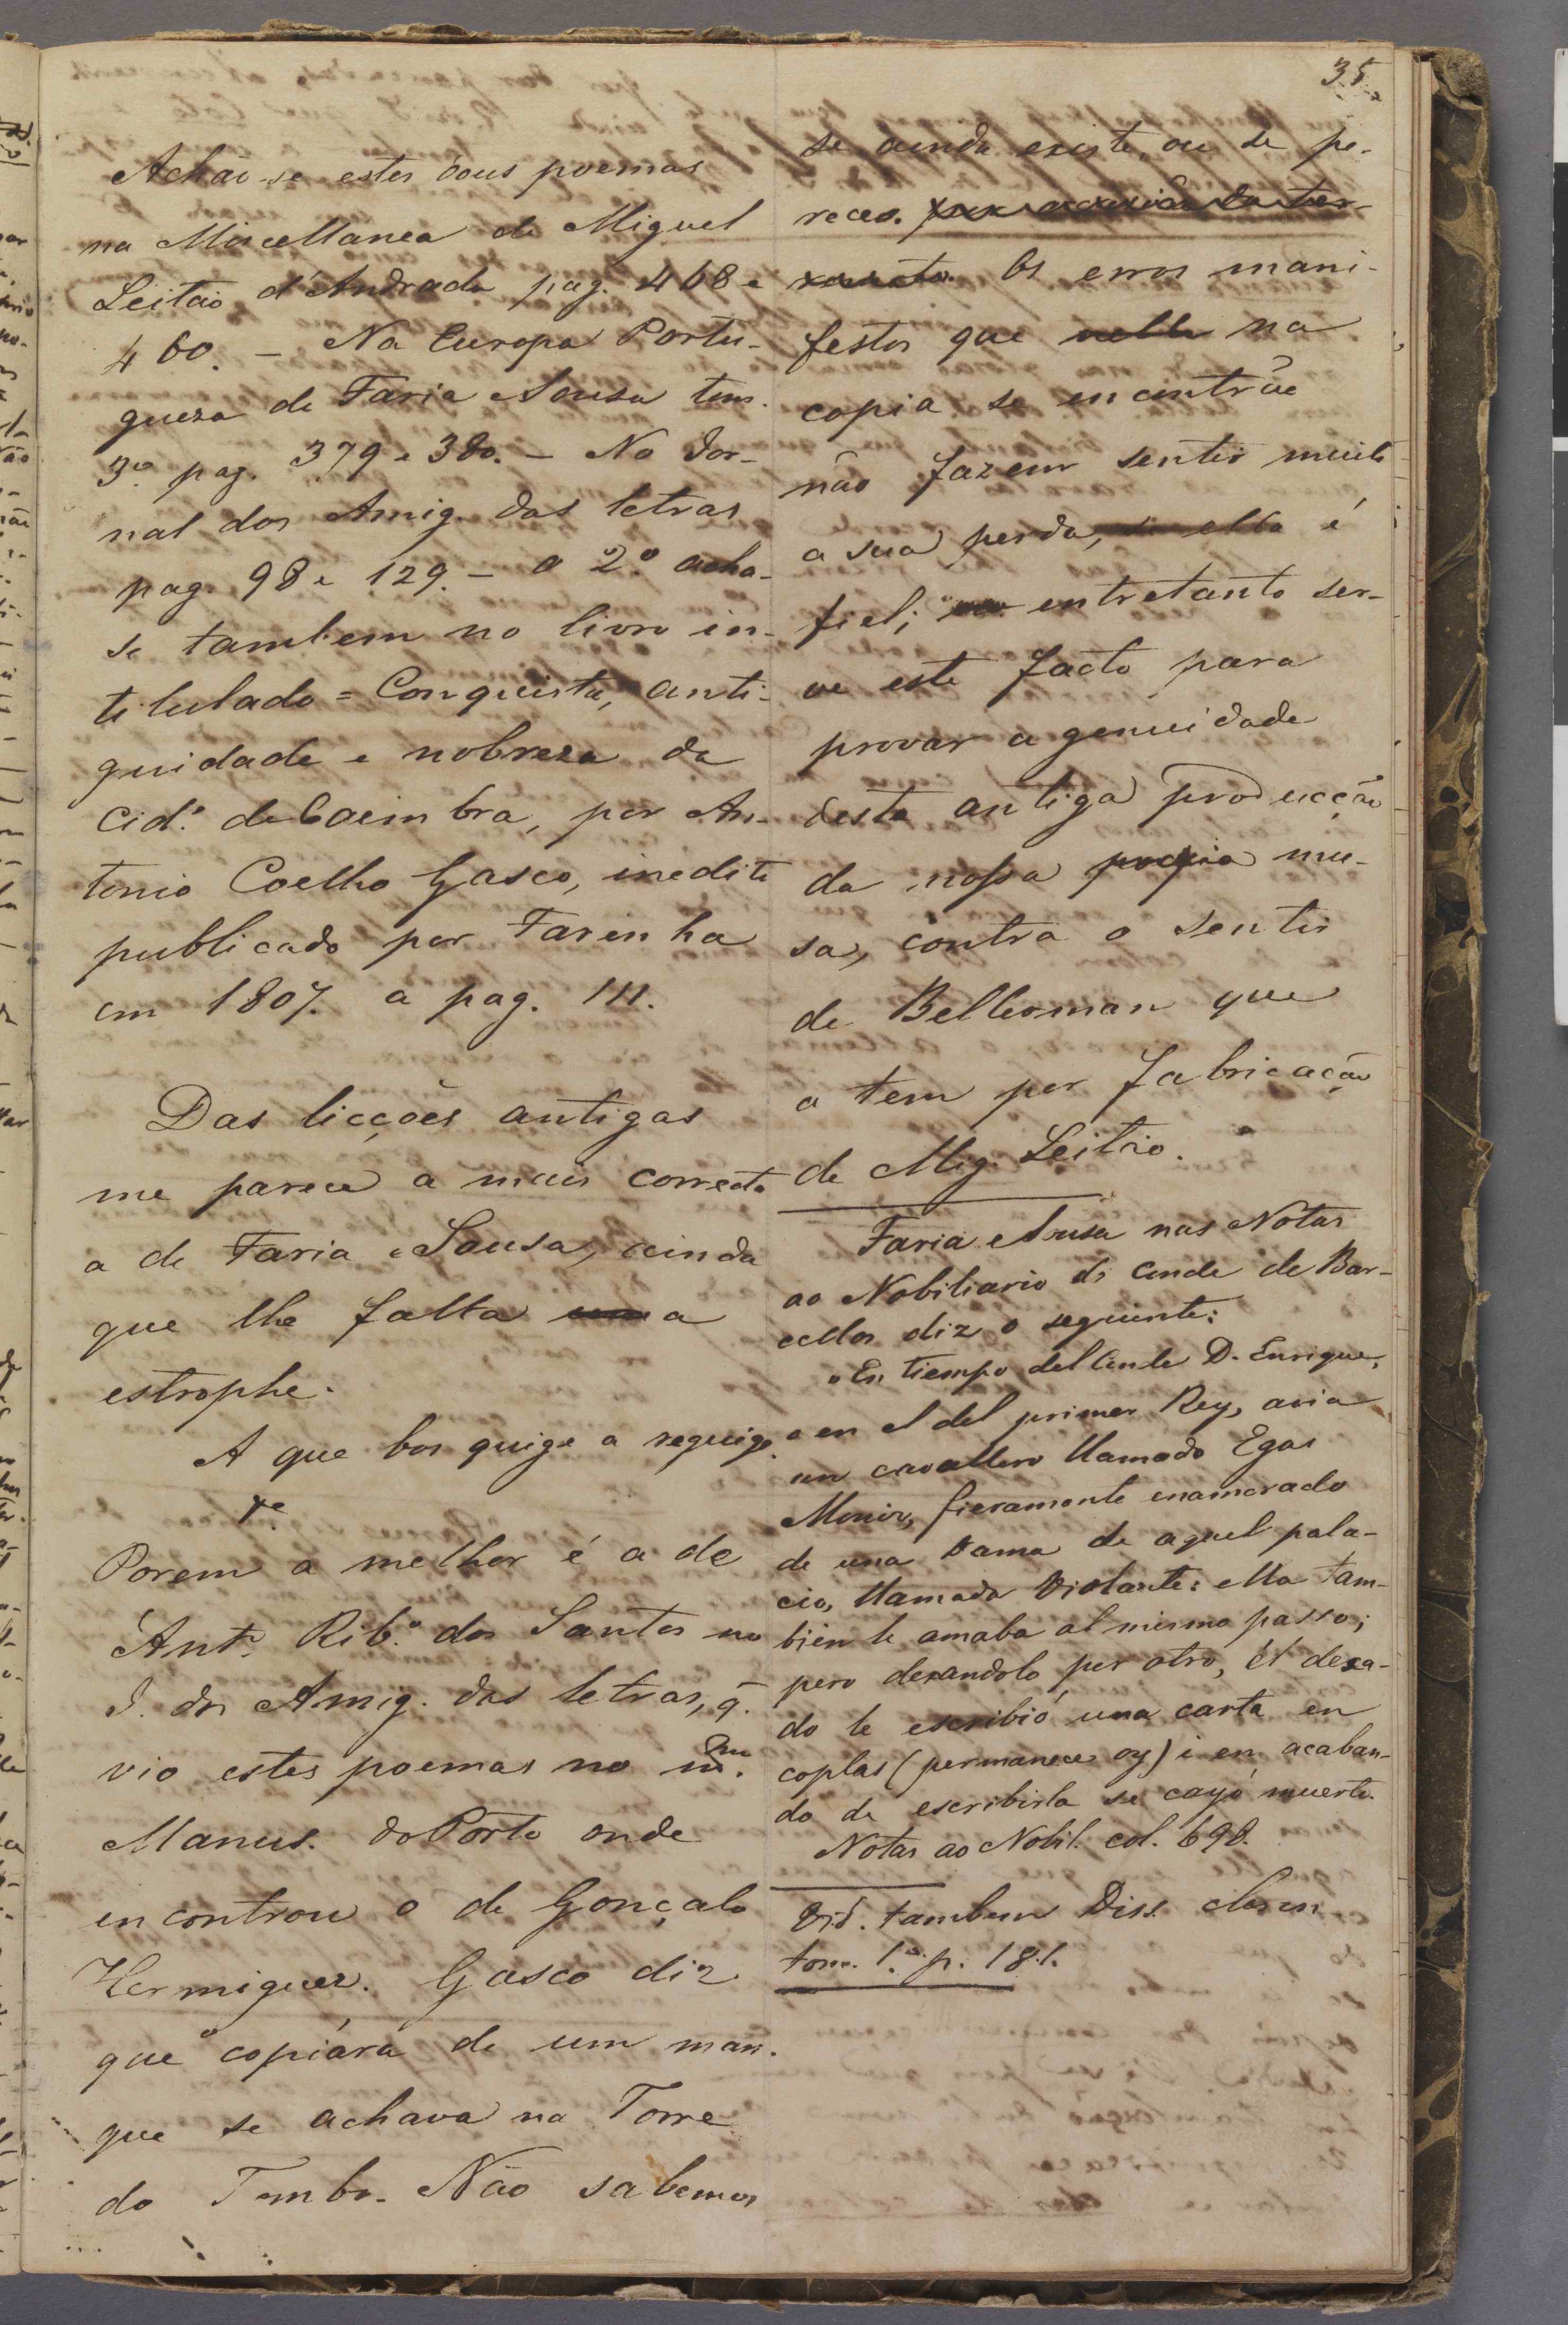 35
Achão-se estes dous poemas
na Miscellanea de Miguel
Leitão d'Andrada pag. 468 e
460. — Na Europa Portu-
gueza de Faria e Sousa tom.
3º pag. 379 e 380. — No Jor-
nal dos Amig. das letras
pag. 98 e 129. — O 2º acha-
se tambem no livro in-
titulado = Conquista, anti-
guidade e nobreza da
Cid.e de Coimbra, por An-
tonio Coelho Gasco, inedito
publicado por Farinha
em 1807. a pag. 111.
Das licções antigas
me parece a mais correcta
a de Faria e Sousa, ainda
que lhe falta uma
estrophe.
A que bos quige a reguige
Porem a melhor é a de
Ant.º Rib.º dos Santos no
J. dos Amig. das letras, q.
vio estes poemas no
Manus. do Porto onde
encontrou o de Gonçalo
Hermiguez. Gasco diz
que copiára de um man.
que se achava na Torre
do Tombo. Não sabemos
se ainda existe, ou se pe-
receo.
Os erros mani-
festos que nella na
copia se encontrão
não fazem sentir muito
a sua perda, se ella é
fiel; entretanto ser-
ve este facto para
provar a genuidade
desta antiga producção
da nossa propria mu-
sa, contra o sentir
de Bellerman que
a tem por fabricação
de Mig. Leitão.
Faria e Sousa nas Notas
ao Nobiliario do Conde de Bar-
cellos diz o seguinte:
"En tiempo del Conde D. Enrique,
e en el del primer Rey, avia
un cavallero llamado Egas
Moniz, fieramente enamorado
de una Dama de aquel pala-
cio, llamada Violante: ella tam-
bien le amaba al mismo passo;
pero dexandolo por otro, él dexa-
do le escribió una carta en
coplas (permanece oy) i en acaban-
do de escribirla se cayó muerto.
Notas ao Nobil. col. 698.
Vid. tambem Diss. chron.
tom. 1.º p. 181.